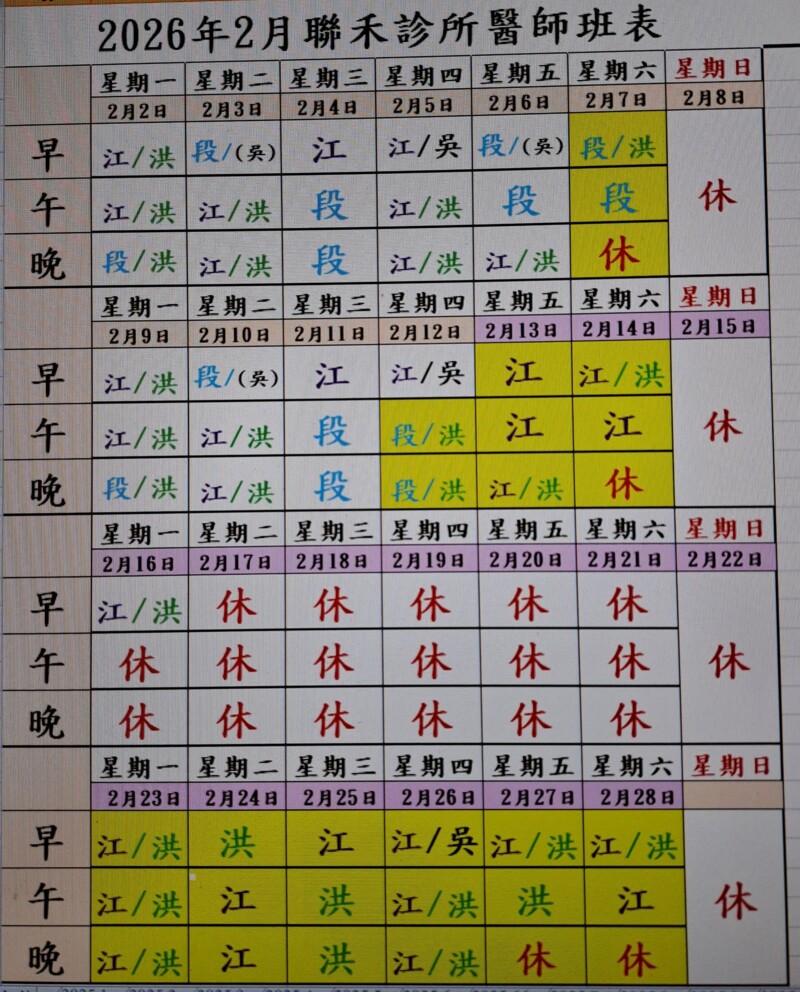 2026年2月聯禾診所醫師班表
星期一 星期二 星期三 星期四 星期五 星期六 星期日
2月2日 2月3日 2月4日 2月5日 2月6日 2月7日 2月8日
早 江/洪 段/(吳) 江 江/吳 段/(吳) 段/洪
午 江/洪 江/洪 段 江/洪 段 段 休
晚 段/洪 江/洪 段 江/洪 江/洪 休
星期一 星期二 星期三 星期四 星期五 星期六 星期日
2月9日 2月10日 2月11日 2月12日 2月13日 2月14日 2月15日
早 江/洪 段/(吳) 江 江/吳 江 江/洪
午 江/洪 江/洪 段 段/洪 江 江 休
晚 段/洪 江/洪 段 段/洪 江/洪 休
星期一 星期二 星期三 星期四 星期五 星期六 星期日
2月16日 2月17日 2月18日 2月19日 2月20日 2月21日 2月22日
早 江/洪 休 休 休 休 休
午 休 休 休 休 休 休 休
晚 休 休 休 休 休 休
星期一 星期二 星期三 星期四 星期五 星期六 星期日
2月23日 2月24日 2月25日 2月26日 2月27日 2月28日
早 江/洪 洪 江 江/吳 江/洪 江/洪
午 江/洪 江 洪 江/洪 洪 江 休
晚 江/洪 江 洪 江/洪 休 休